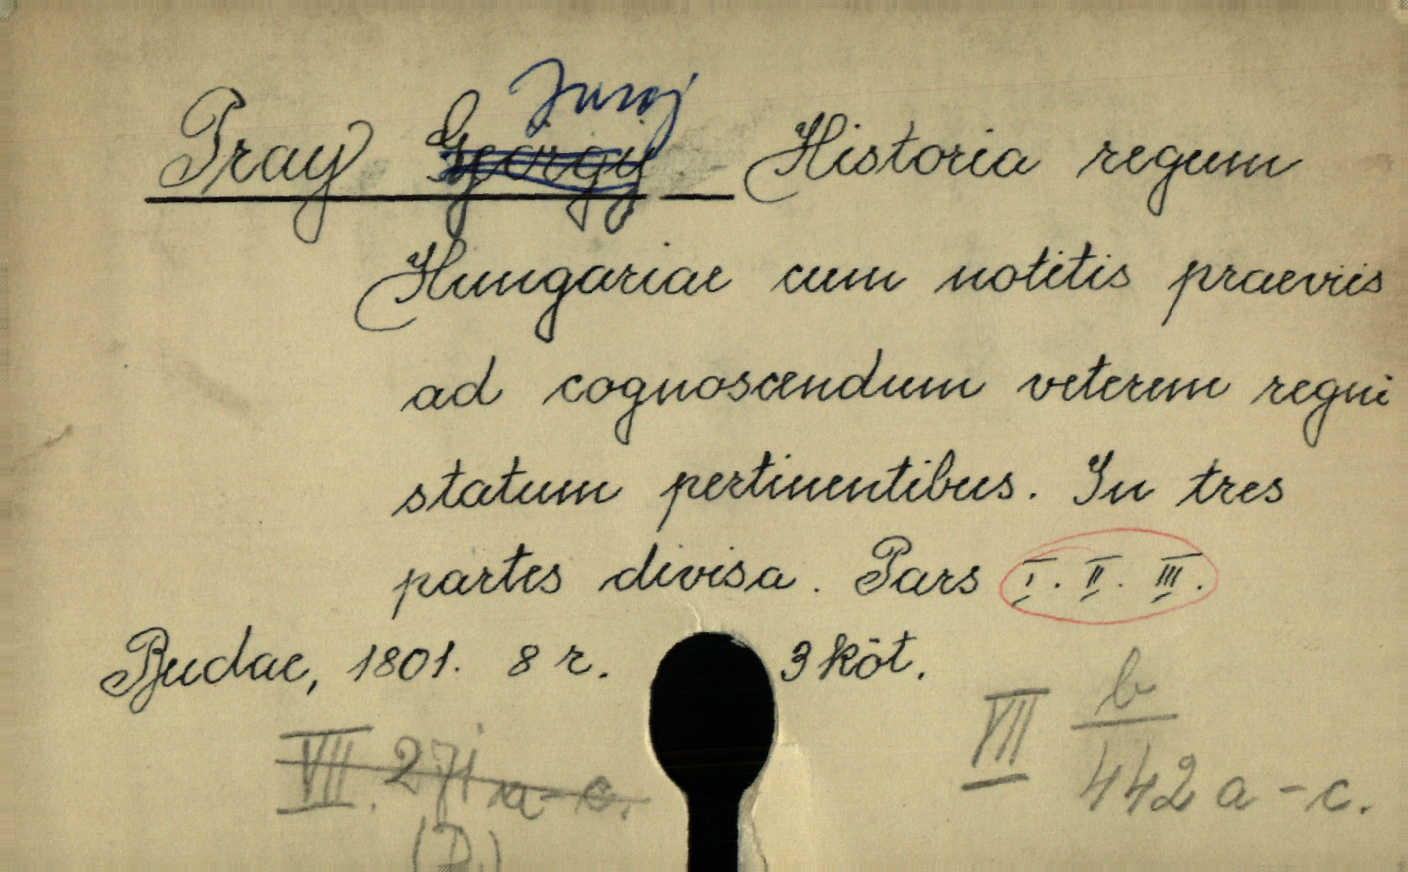 Juraj
Pray György Historia regum
Hungariae cum notitis praeviis
ad cognoscendum veterem regni
statum pertinentibus. In tres
partes divisa. Pars I. II. III.
Budae, 1801. 8 r. 3 köt.
VII b/442 a-c.
VII. 271 a-c.
(D.)